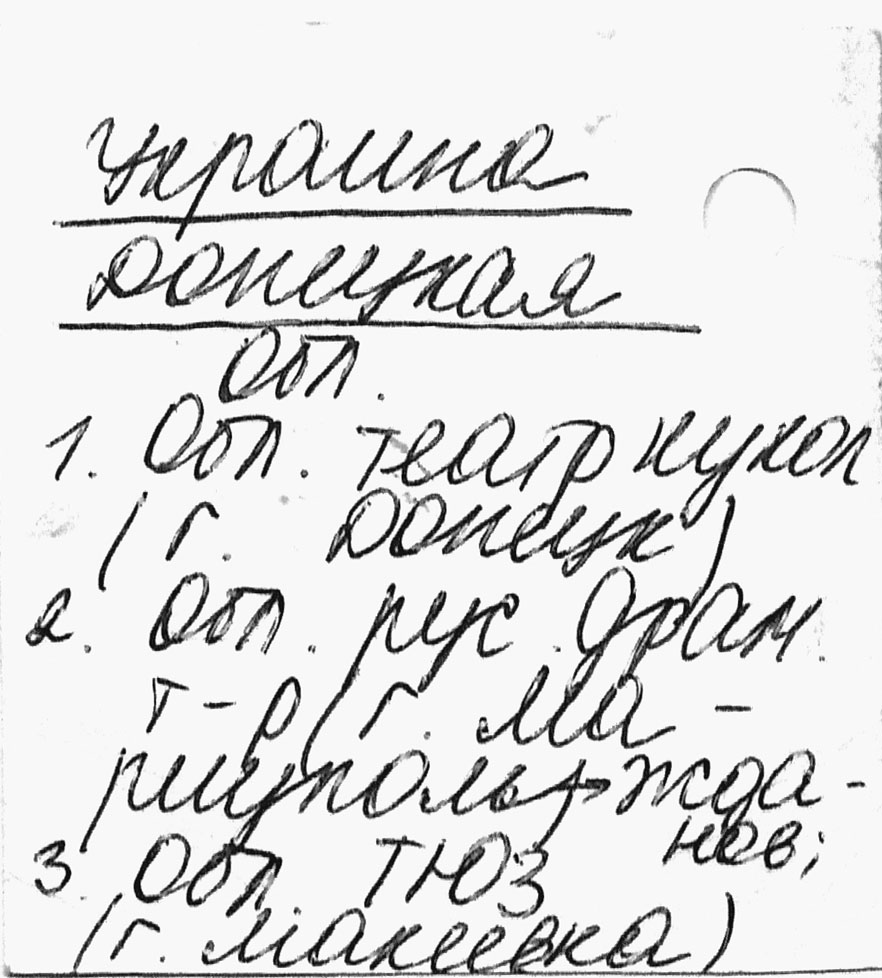 Украина
Донецкая
обл.
1. Обл. театр кукол
(г. Донецк)
2. Обл. рус. драм.
т-р (г. Ма-
риуполь)→Жда-
нов;
3. Обл. ТЮЗ
(г. Макеевка)